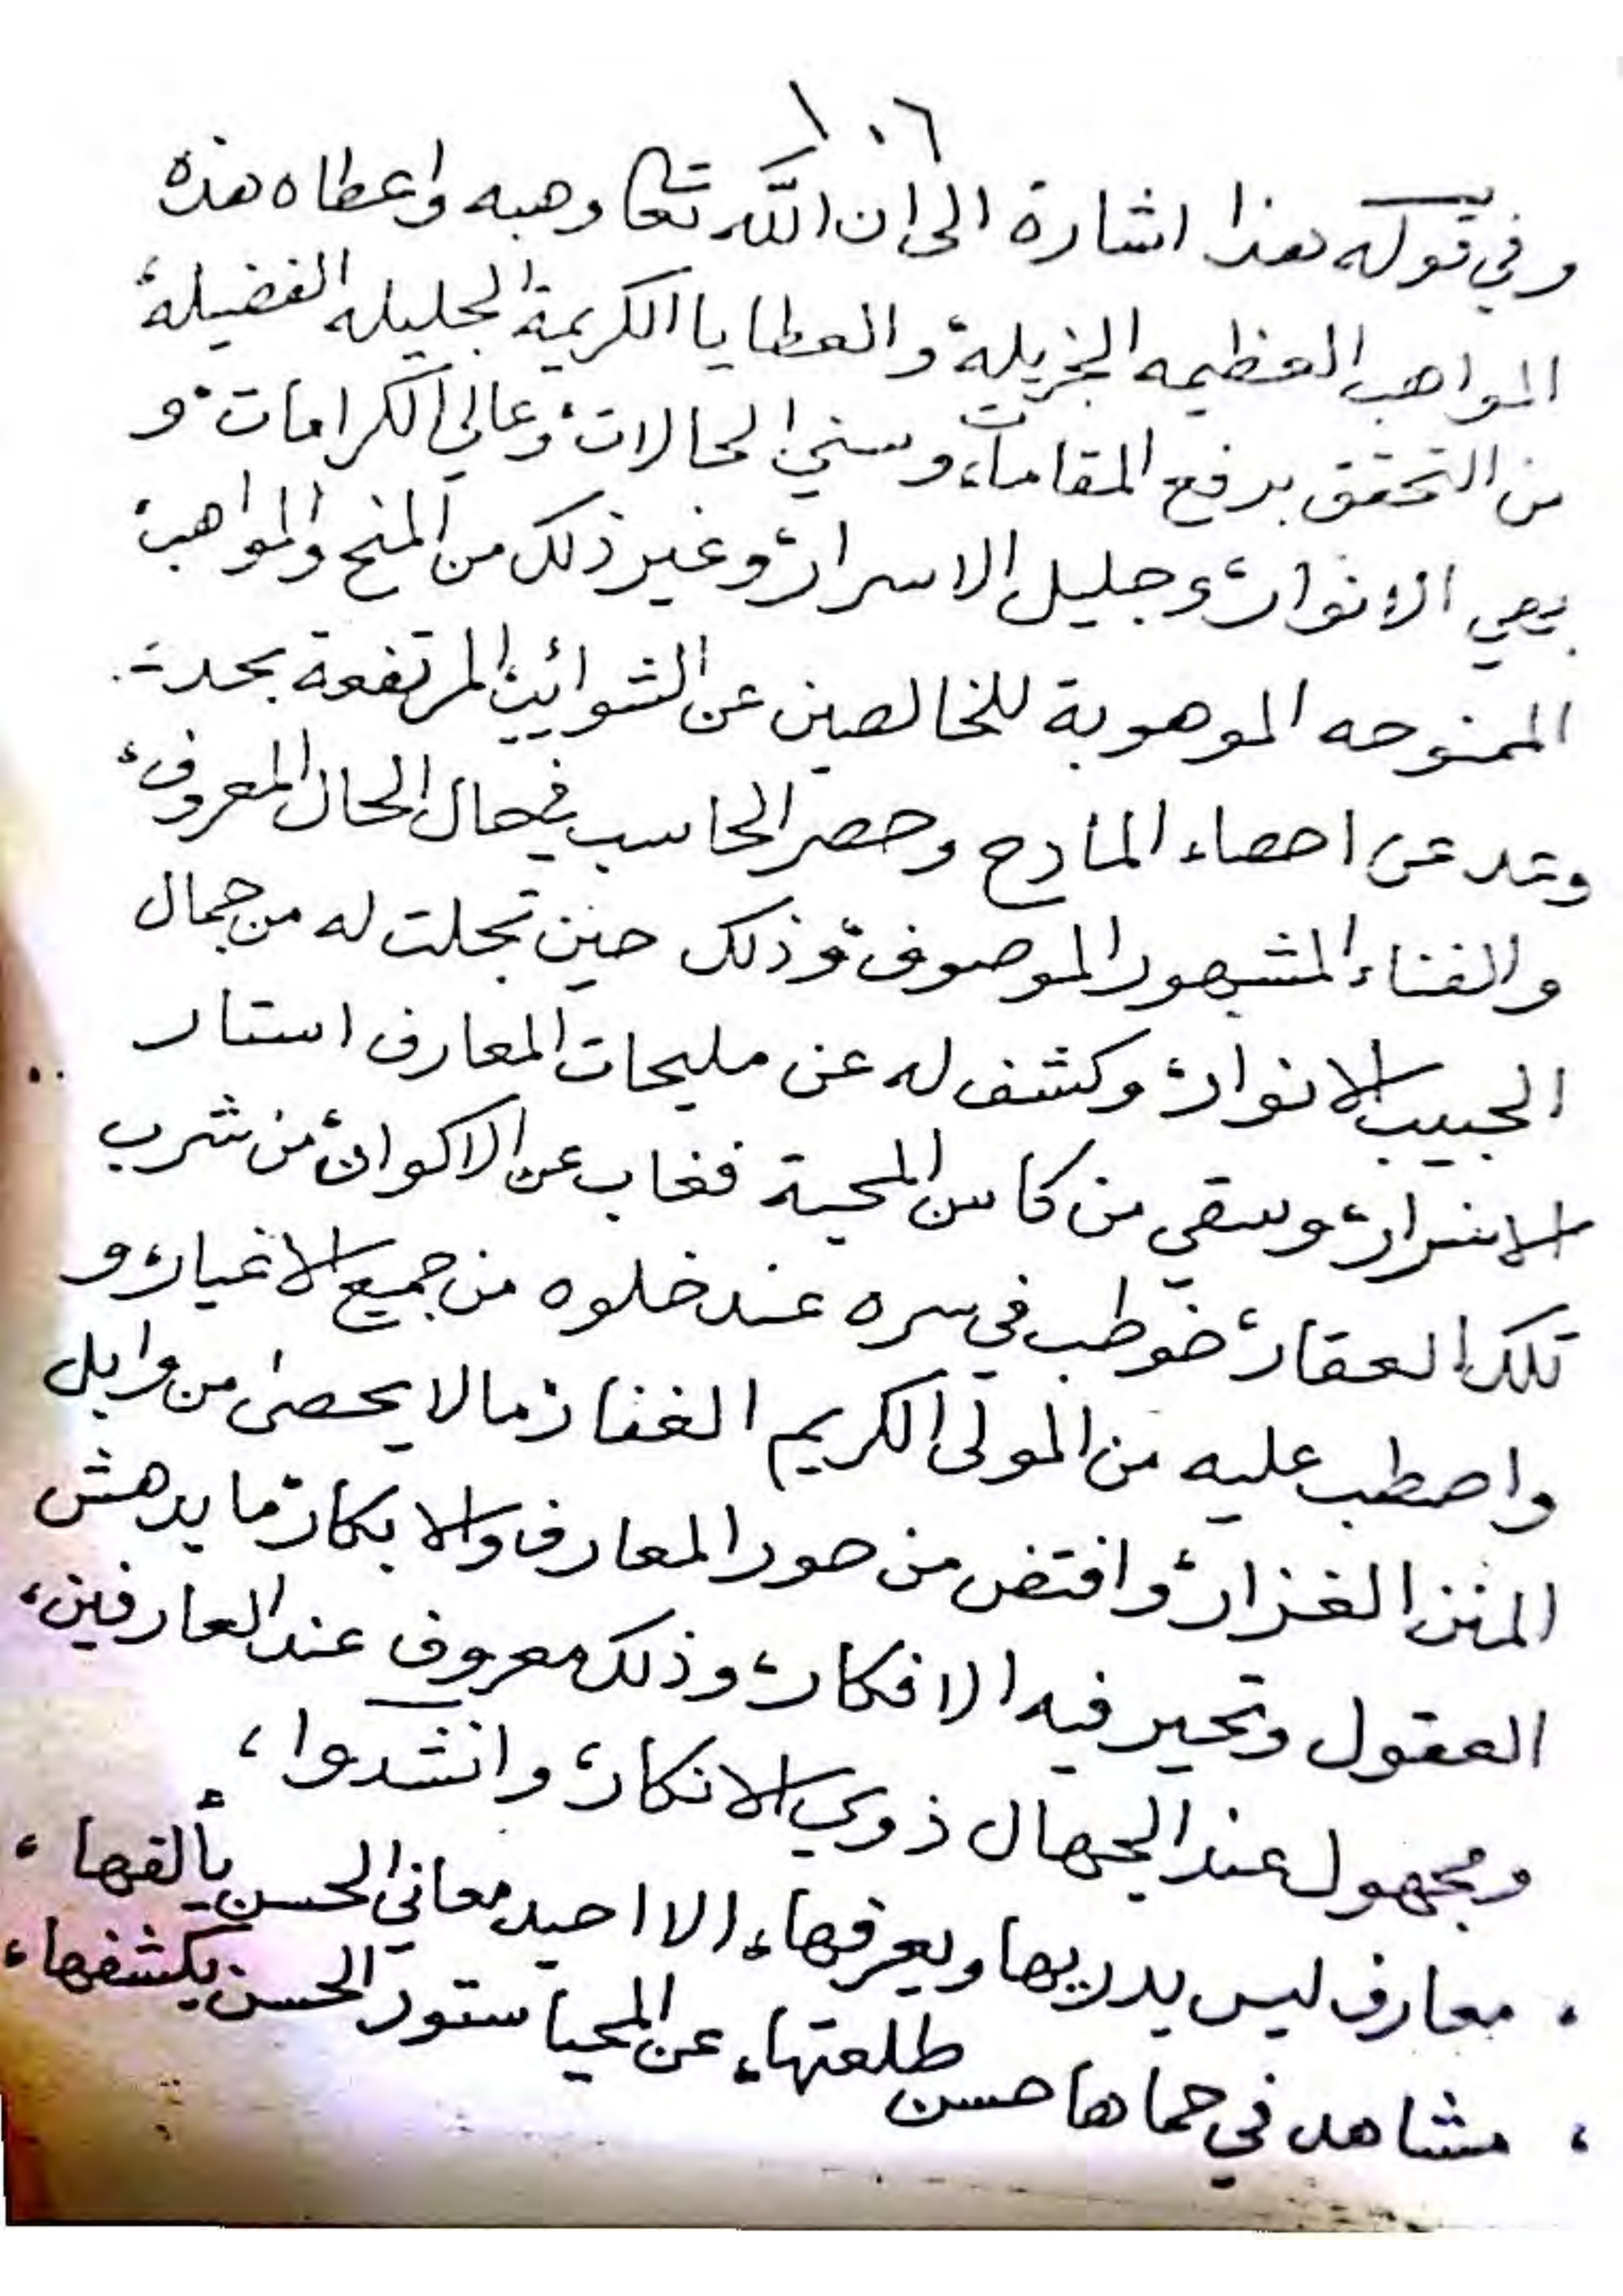 ١٠٦
وفي قوله هذا اشارة الى ان الله تعا وهبه واعطاه هذه
المواهب العظيمه الجزيلة والعطايا الكريمة الجليله الفضيلة
من التحقق برفع المقامات، وسني الحالات، وعالي الكرامات، و
بهي الانوار، وجليل الاسرار، وغير ذلك من المنح والمواهب
الممنوحه الموهوبة للخالصين عن الشوائب المرتفعة بحد
وعد عن احصاء المادح وحصر الحاسب في حال الحال المعروف،
والفناء المشهور الموصوف، وذلك حين تجلت له من جمال
الحبيب الانوار، وكشف له عن مليحات المعارف استار
الاسرار، وسقي من كاس المحبة فغاب عن الاكوان، من شرب
تلك العقار، خوطب في سره عند خلوه من جميع الاغيار، و
واصطب عليه من المولى الكريم الغفار، ما لا يحصى من وابل
المنن الغزار، وافتض من حور المعارف والابكار، ما يدهش
العقول وتحير فيه الافكار، وذلك معروف عند العارفين،
ومجهول عند الجهال ذوي الانكار، وانشدوا،
معارف ليس يدريها ويعرفها، الا احيد معاني الحسن يألفها،
مشاهد في حماها حسن طلعتها، عن المحيا ستور الحسن يكشفها،